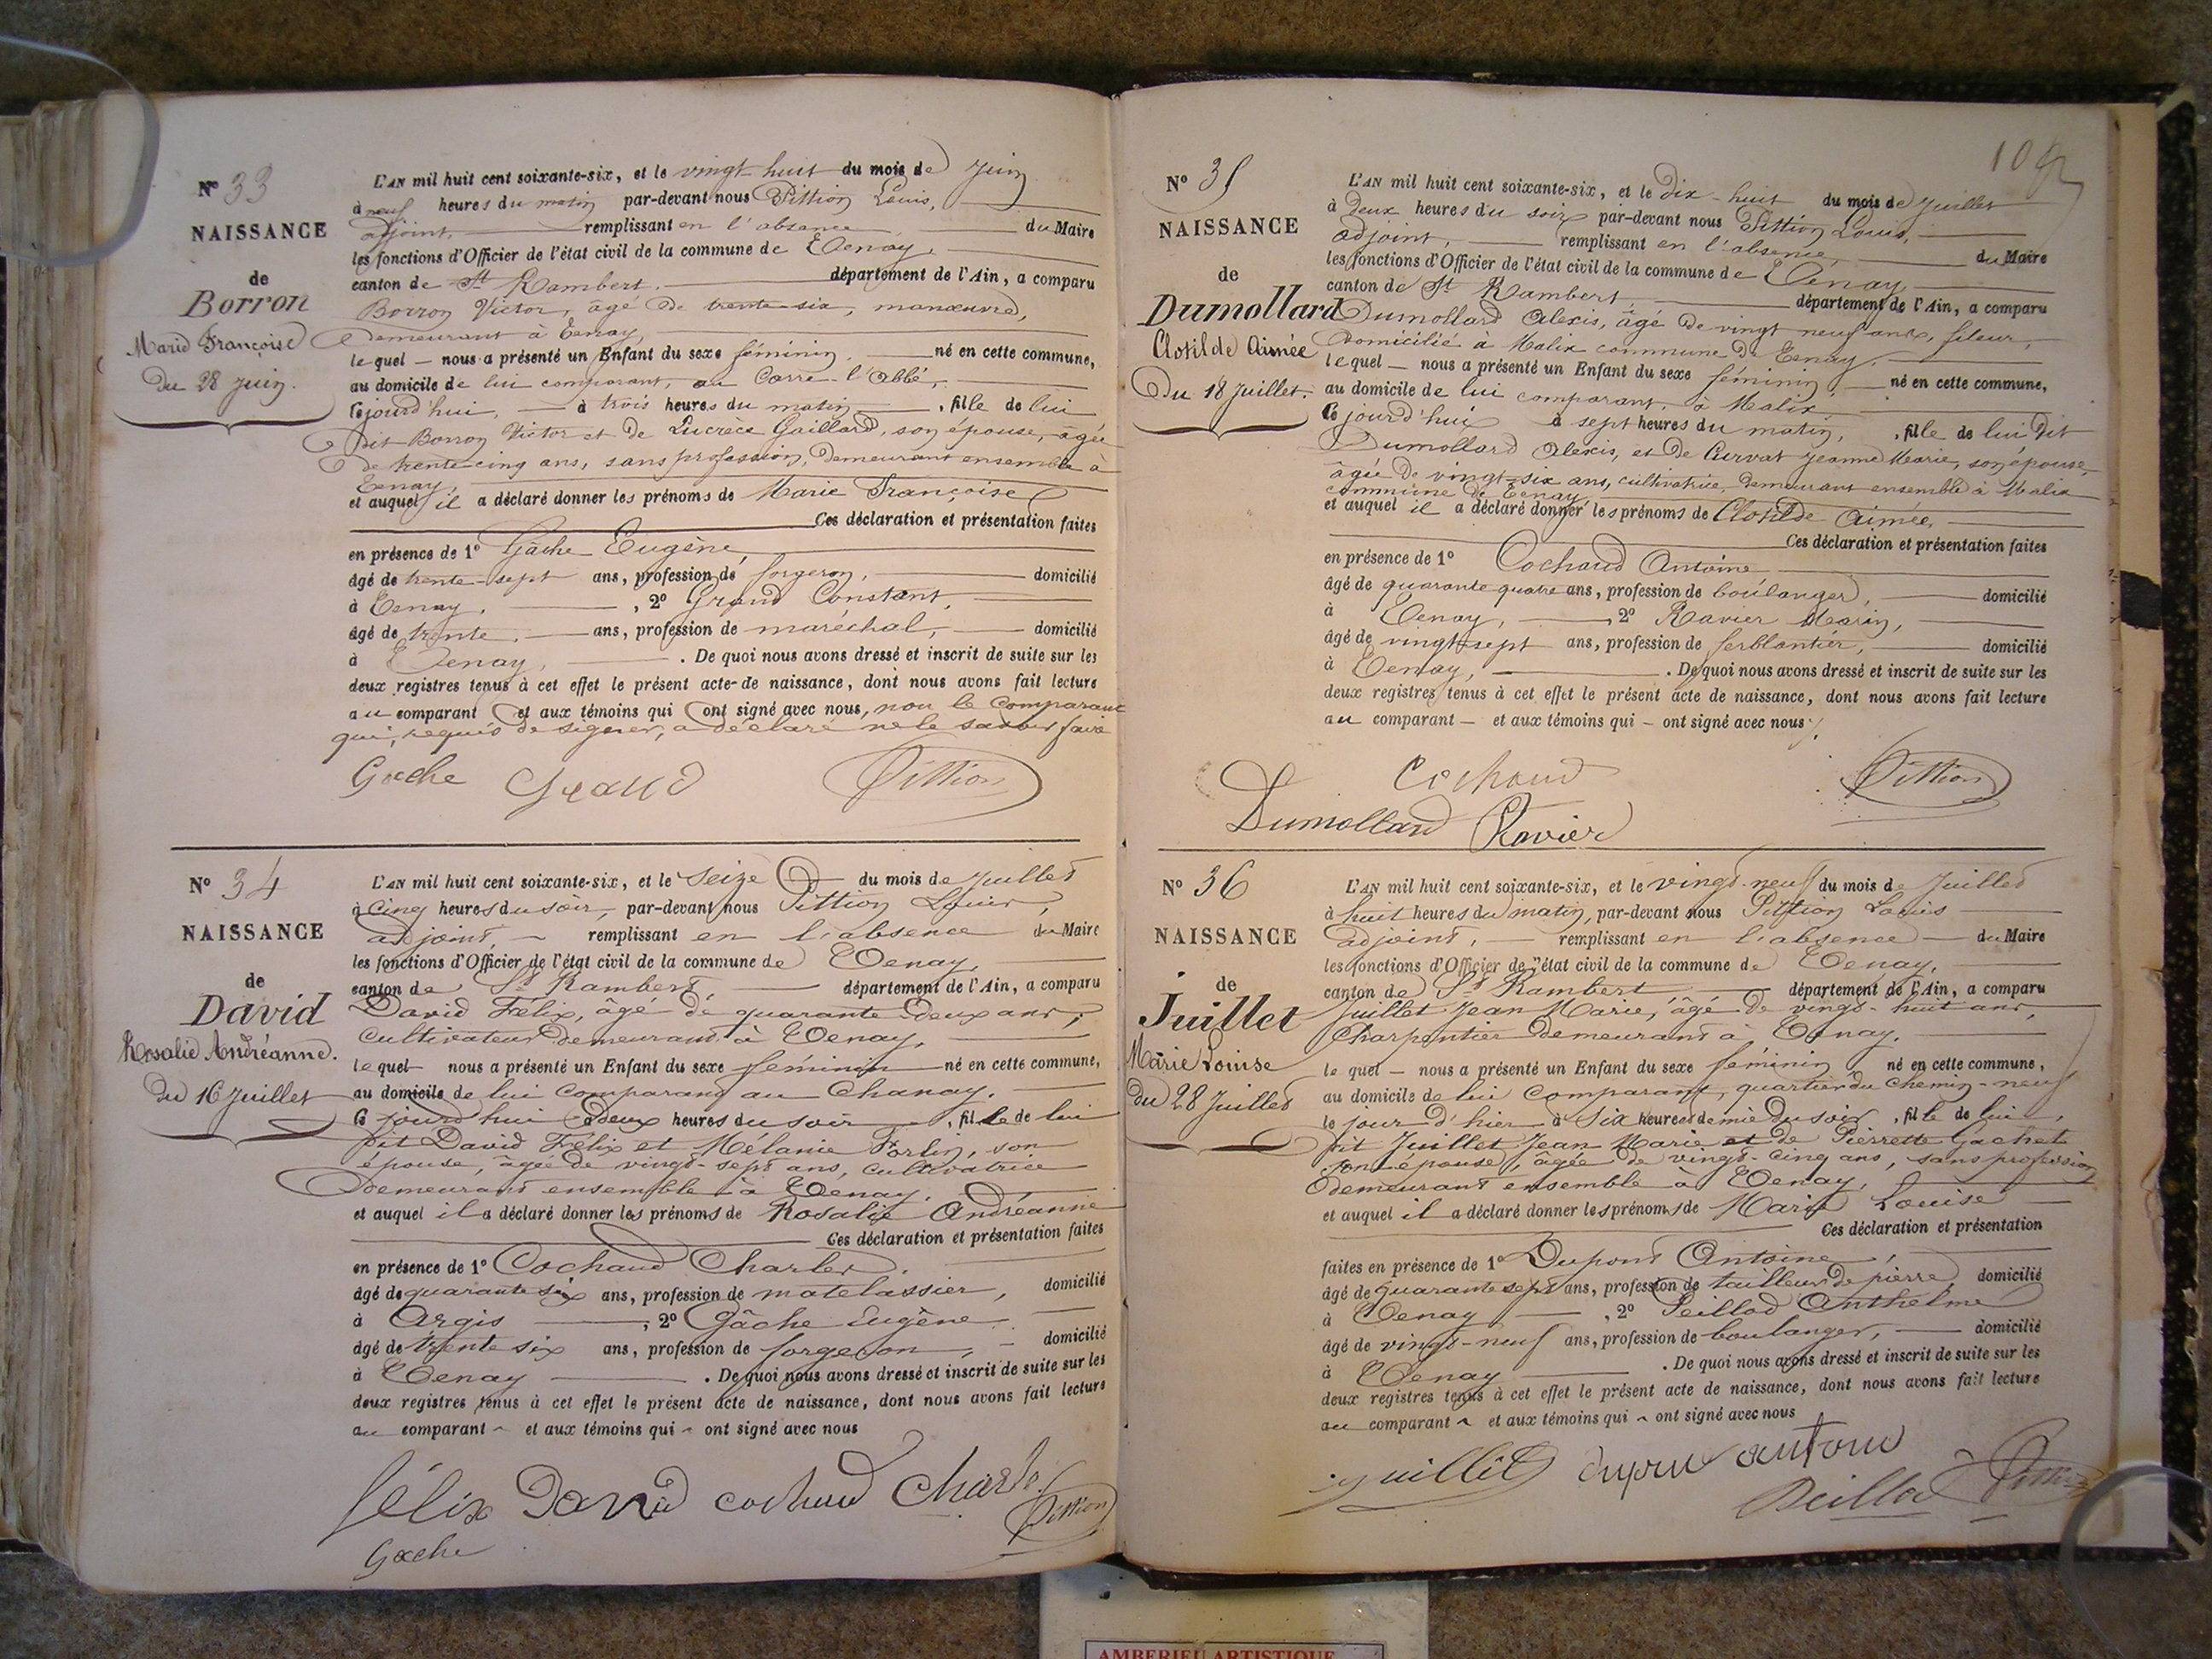 N° 33
NAISSANCE
de
Borron
Marie Françoise
du 28 juin.
L'AN mil huit cent soixante-six, et le vingt huit du mois de juin
à neuf heures du matin par-devant nous Pittion Louis,
adjoint, remplissant en l'absence du Maire
les fonctions d'Officier de l'état civil de la commune de Tenay,
canton de St Rambert, département de l'Ain, a comparu
Borron Victor, âgé de trente-six, manœuvre,
demeurant à Tenay,
lequel nous a présenté un Enfant du sexe féminin, né en cette commune,
au domicile de lui comparant, au Carre-l'Abbé,
cejourd'hui, à trois heures du matin, fille de lui
dit Borron Victor et de Lucrèce Gaillard, son épouse, âgée
de trente-cinq ans, sans profession, demeurant ensemble à
Tenay,
et auquel il a déclaré donner les prénoms de Marie Françoise
Ces déclaration et présentation faites
en présence de 1° Gâche Eugène,
âgé de trente-sept ans, profession de forgeron, domicilié
à Tenay, , 2° Grand Constant,
âgé de trente, ans, profession de maréchal, domicilié
à Tenay, . De quoi nous avons dressé et inscrit de suite sur les
deux registres tenus à cet effet le présent acte de naissance, dont nous avons fait lecture
au comparant et aux témoins qui ont signé avec nous, non le comparant
qui, requis de signer, a déclaré ne le savoir faire
Gache Grand Pittion
N° 34
NAISSANCE
de
David
Rosalie Andréanne.
du 16 juillet
L'AN mil huit cent soixante-six, et le seize du mois de juillet
à cinq heures du soir, par-devant nous Pittion Louis,
adjoint, remplissant en l'absence du Maire
les fonctions d'Officier de l'état civil de la commune de Tenay,
canton de St Rambert, département de l'Ain, a comparu
David Félix, âgé de quarante-deux ans,
cultivateur demeurant à Tenay,
lequel nous a présenté un Enfant du sexe féminin né en cette commune,
au domicile de lui comparant au Chanay,
cejourd'hui à deux heures du soir, fille de lui
dit David Félix et Mélanie Forlin, son
épouse, âgée de vingt-sept ans, cultivatrice
demeurant ensemble à Tenay,
et auquel il a déclaré donner les prénoms de Rosalie Andréanne
Ces déclaration et présentation faites
en présence de 1° Cochaud Charles,
âgé de quarante six ans, profession de matelassier, domicilié
à Argis , 2° Gâche Eugène
âgé de trente six ans, profession de forgeron, domicilié
à Tenay . De quoi nous avons dressé et inscrit de suite sur les
deux registres tenus à cet effet le présent acte de naissance, dont nous avons fait lecture
au comparant et aux témoins qui ont signé avec nous
Félix David cochaud Charle Pittion
Gache
N° 35
NAISSANCE
de
Dumollard
Clotilde Aimée
Du 18 Juillet.
L'AN mil huit cent soixante-six, et le dix-huit du mois de juillet
à deux heures du soir par-devant nous Pittion Louis,
adjoint, remplissant en l'absence, du Maire
les fonctions d'Officier de l'état civil de la commune de Tenay
canton de St Rambert, département de l'Ain, a comparu
Dumollard Alexis, âgé de vingt neuf ans, fileur,
domicilié à Malix commune de Tenay,
lequel nous a présenté un Enfant du sexe féminin, né en cette commune,
au domicile de lui comparant, à Malix,
cejourd'hui à sept heures du matin, , fille de lui dit
Dumollard Alexis, et de Curvat Jeanne Marie, son épouse,
âgée de vingt-six ans, cultivatrice, demeurant ensemble à Malix
commune de Tenay,
et auquel il a déclaré donner les prénoms de Clotilde Aimée,
Ces déclaration et présentation faites
en présence de 1° Cochaud Antoine
âgé de quarante quatre ans, profession de boulanger, domicilié
à Tenay, , 2° Ravier Marin,
âgé de vingt-sept ans, profession de ferblantier, domicilié
à Tenay, . De quoi nous avons dressé et inscrit de suite sur les
deux registres tenus à cet effet le présent acte de naissance, dont nous avons fait lecture
au comparant et aux témoins qui ont signé avec nous
Cochaud Pittion
Dumollard Ravier
N° 36
NAISSANCE
de
Juillet
Marie Louise
du 28 Juillet
L'AN mil huit cent soixante-six, et le vingt-neuf du mois de Juillet
à huit heures du matin, par-devant nous Pittion Louis
adjoint, remplissant en l'absence du Maire
les fonctions d'Officier de l'état civil de la commune de Tenay,
canton de St Rambert département de l'Ain, a comparu
Juillet Jean Marie, âgé de vingt-huit ans,
Charpentier demeurant à Tenay,
lequel nous a présenté un Enfant du sexe féminin né en cette commune,
au domicile de lui comparant, quartier du chemin-neuf
le jour d'hier à six heures et demie du soir, fille de lui,
dit Juillet Jean Marie et de Pierrette Gachet
son épouse, âgée de vingt-cinq ans, sans profession
demeurant ensemble à Tenay,
et auquel il a déclaré donner les prénoms de Marie Louise
Ces déclaration et présentation
faites en présence de 1° Dupont Antoine,
âgé de quarante sept ans, profession de tailleur de pierre, domicilié
à Tenay , 2° Peillod Anthelme
âgé de vingt-neuf ans, profession de boulanger, domicilié
à Tenay . De quoi nous avons dressé et inscrit de suite sur les
deux registres tenus à cet effet le présent acte de naissance, dont nous avons fait lecture
au comparant et aux témoins qui ont signé avec nous
Peillod Pittion
AMBERIEU ARTISTIQUE